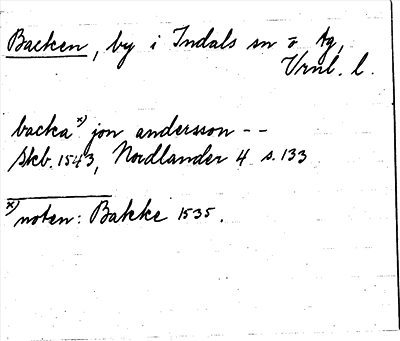 Backen, by i Indals sn o Ag,
Vrnl. l.
backa x) jon andersson - -
Skb. 1543, Nordlander 4 s. 133
x) noten: Bakke 1535.